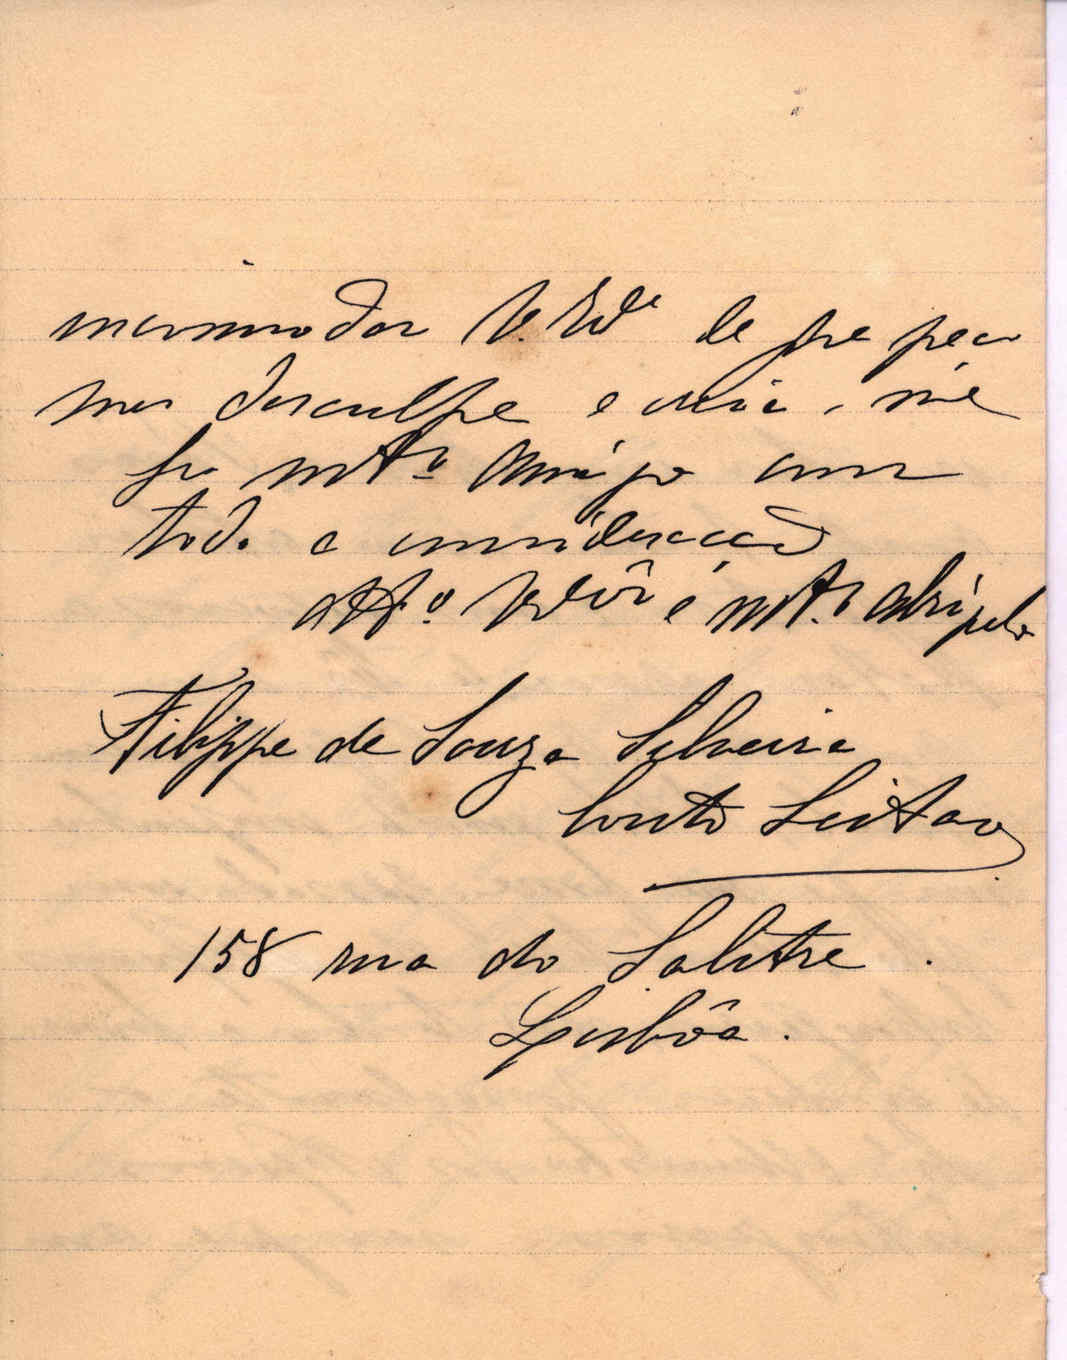 incommodar V. Exª de que peço
me desculpe e creia-me
seu mtº amigo com
toda a consideração
Attº Vor e mtº obrigado
Filippe de Souza Silveira
Couto Leitao
158 rua do Salitre.
Lisbôa.